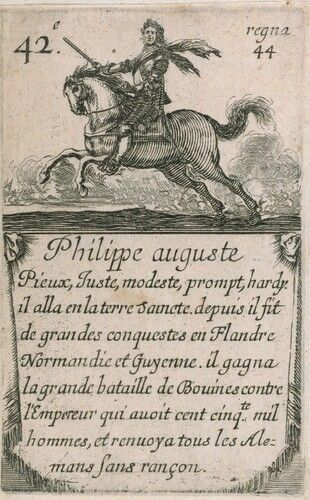 42.e
regna
44
Philippe auguste
Pieux, Juste, modeste, prompt, hardy.
il alla en la terre Saincte. depuis il fit
de grandes conquestes en Flandre
Normandie et Guyenne. il gagna
la grande bataille de Bouines contre
l'Empereur qui avoit cent cinq.te mil
hommes, et renvoya tous les Ale-
mans sans rançon.